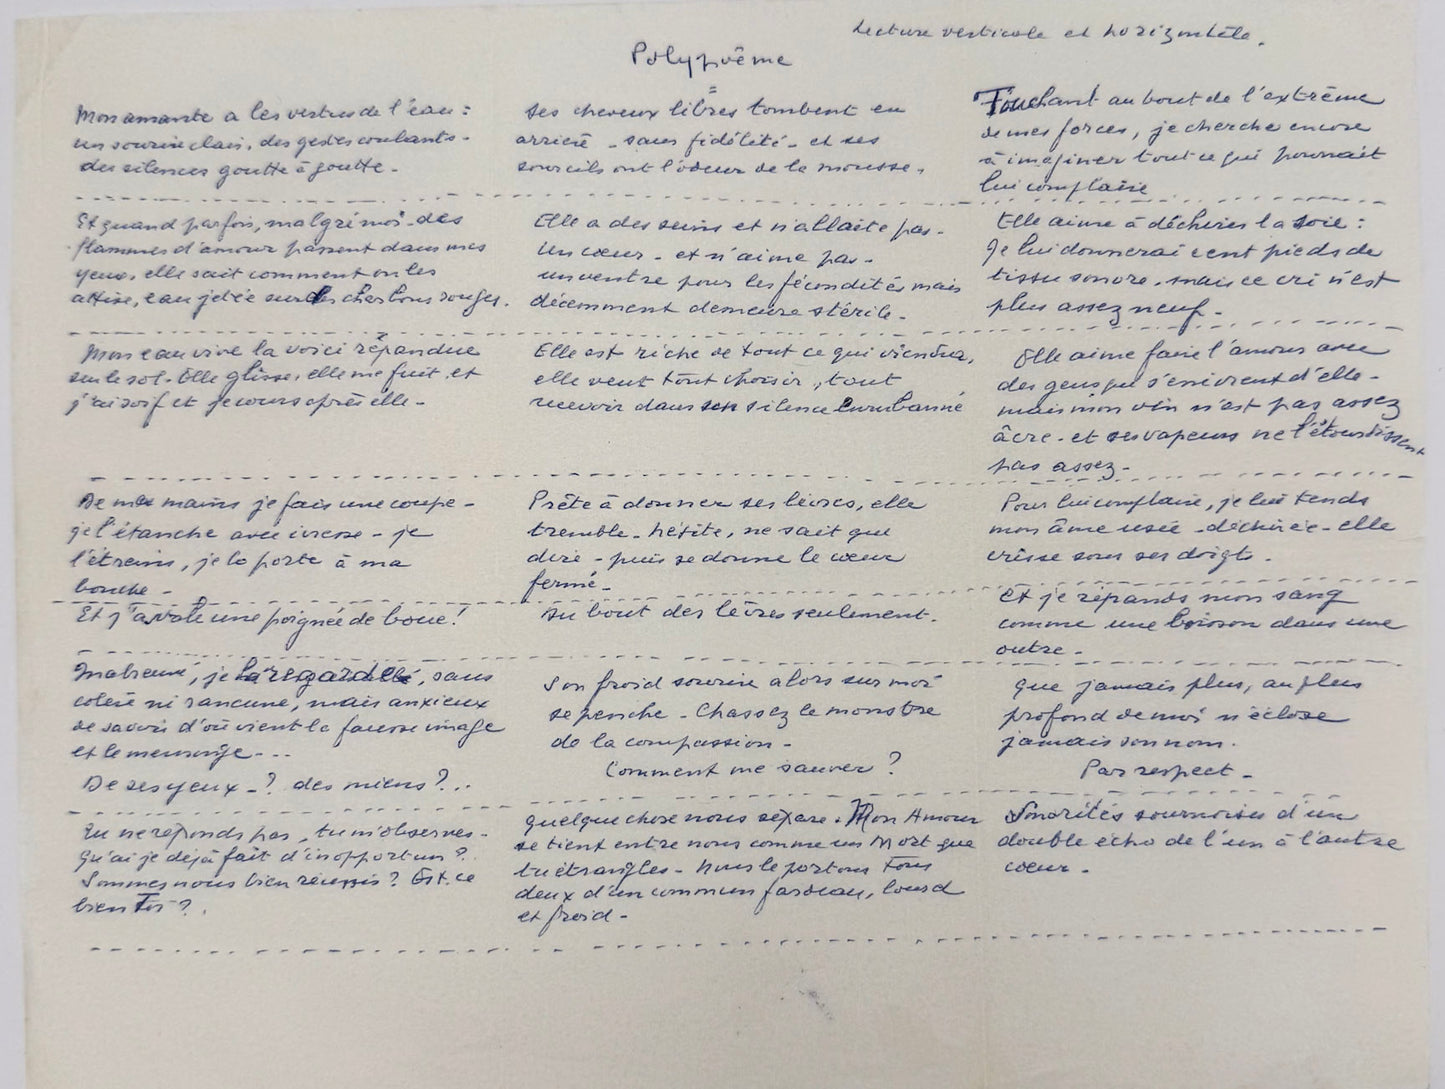 Lecture verticale et horizontale.
Polypoême
Mon amante a les vertus de l'eau :
un sourire clair, des gestes coulants -
des silences goutte à goutte -
Ses cheveux libres tombent en
arrière - sans fidélité - et ses
sourcils ont l'odeur de la mousse.
Touchant au bout de l'extrême
de mes forces, je cherche encore
à imaginer tout ce qui pourrait
lui complaire
Et quand parfois, malgré moi - des
flammes d'amour passent dans mes
yeux, elle sait comment on les
attise, eau jetée sur les charbons rouges.
Elle a des seins et n'allaite pas -
Un cœur - et n'aime pas -
un ventre pour les fécondités mais
décemment demeure stérile -
Elle aime à déchirer la soie :
Je lui donnerai cent pieds de
tissu sonore - mais ce cri n'est
plus assez neuf -
Mon eau vive la voici répandue
sur le sol. Elle glisse, elle me fuit, et
j'ai soif et je cours après elle -
Elle est riche de tout ce qui viendra,
elle veut tout choisir, tout
recevoir dans son silence enrubanné
Elle aime faire l'amour avec
des gens qui s'enivrent d'elle -
mais mon vin n'est pas assez
âcre - et ses vapeurs ne l'étourdissent
pas assez -
De mes mains je fais une coupe -
je l'étanche avec ivresse - je
l'étreins, je la porte à ma
bouche -
Prête à donner ses lèvres, elle
tremble - hésite, ne sait que
dire - puis se donne le cœur
fermé -
Pour lui complaire, je lui tends
mon âme usée - déchirée - elle
crisse sous ses doigts -
Et j'avale une poignée de boue !
Du bout des lèvres seulement.
Et je répands mon sang
comme une boisson dans une
outre -
je la regarde, sans
colère ni rancune, mais anxieux
de savoir d'où vient la fausse image
et le mensonge - ...
De ses yeux - ? des miens ? ..
Son froid sourire alors sur moi
se penche - Chassez le monstre
de la compassion -
Comment me sauver ?
Que jamais plus, au plus
profond de moi n'éclose
jamais son nom.
Par respect -
Tu ne réponds pas, tu m'observes -
Qu'ai-je déjà fait d'inopportun ?
Sommes nous bien réunis ? Est-ce
bien Toi ?
Quelque chose nous sépare. Mon Amour
se tient entre nous comme un Mort que
tu étrangles - Nous le portons Tous
deux d'un commun fardeau, lourd
et froid -
Sonorités sournoises d'un
double écho de l'un à l'autre
cœur -